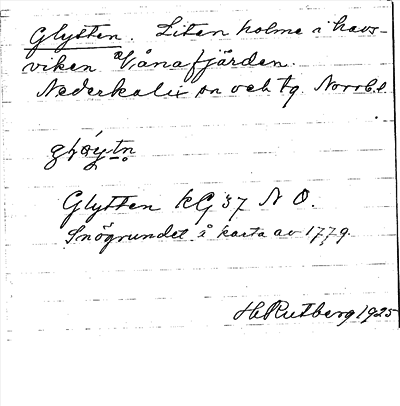 Glytten. Liten holme i havs-
viken Vånafjärden.
Nederkalix sn och tg. Norrb. l.
Glytten kG 37 N O.
Snögrundet å karta av 1779.
H. Rutberg 1925